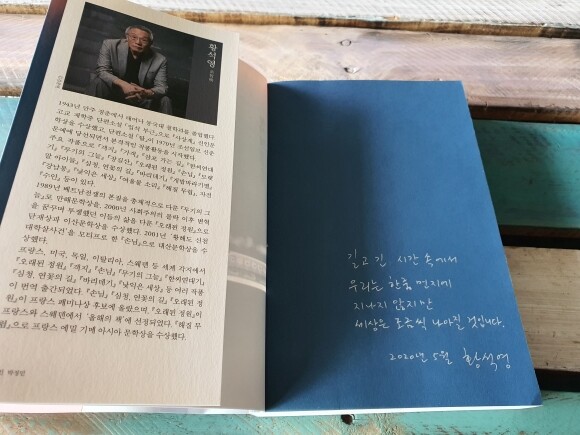 황석영
1943년 만주 장춘에서 태어나 동국대 철학과를 졸업했다.
고교 재학중 단편소설 「입석 부근」으로 『사상계』 신인문
학상을 수상했고, 단편소설 「탑」이 1970년 조선일보 신춘
문예에 당선되면서 본격적인 작품활동을 시작했다.
주요 작품으로 『객지』 『가객』 『삼포 가는 길』 『한씨연대
기』 『무기의 그늘』 『장길산』 『오래된 정원』 『손님』 『모랫
말 아이들』 『심청, 연꽃의 길』 『바리데기』 『개밥바라기별』
『강남몽』 『낯익은 세상』 『여울물 소리』 『해질 무렵』, 자전
『수인』 등이 있다.
1989년 베트남전쟁의 본질을 총체적으로 다룬 『무기의 그
늘』로 만해문학상을, 2000년 사회주의의 몰락 이후 변혁
을 꿈꾸며 투쟁했던 이들의 삶을 다룬 『오래된 정원』으로
단재상과 이산문학상을 수상했다. 2001년 '황해도 신천
대학살사건'을 모티프로 한 『손님』으로 대산문학상을 수
상했다.
프랑스, 미국, 독일, 이탈리아, 스웨덴 등 세계 각지에서
『오래된 정원』 『객지』 『손님』 『무기의 그늘』 『한씨연대기』
『심청, 연꽃의 길』 『바리데기』 『낯익은 세상』 등 여러 작품
이 번역 출간되었다. 『손님』 『심청, 연꽃의 길』 『오래된 정
원』이 프랑스 페미나상 후보에 올랐으며, 『오래된 정원』이
프랑스와 스웨덴에서 '올해의 책'에 선정되었다. 『해질 무
렵』으로 프랑스 에밀 기메 아시아 문학상을 수상했다.
길고 긴 시간 속에서
우리는 한줌 먼지에
지나지 않지만
세상은 조금씩 나아질 것입니다.
2020년 5월 황석영